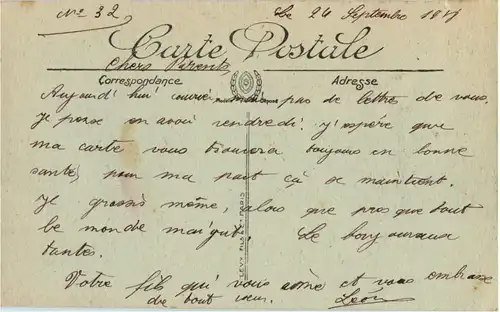 No 32
Le 24 Septembre 1917
Carte Postale
Chers Parents
Correspondance
Adresse
Aujourd'hui encore pas de lettre de vous.
Je pense en avoir vendredi. J'espère que
ma carte vous trouvera toujours en bonne
santé, pour ma part çà se maintient.
Je grossis même, alors que presque tout
le monde maigrit. Le bonjour aux
tantes.
Votre fils qui vous aime et vous embrasse
de tout cœur. Léon
LEVY FILS & Cie PARIS